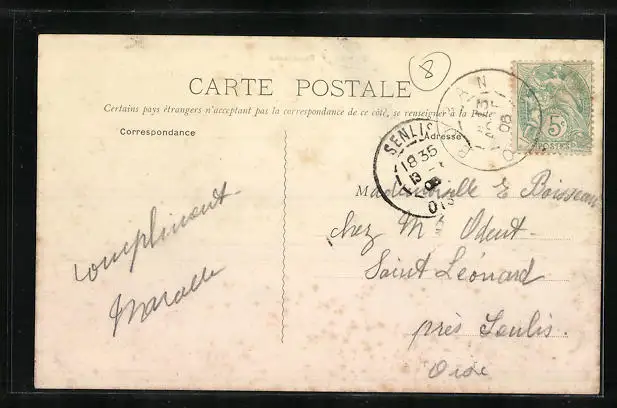 8
CARTE POSTALE
Certains pays étrangers n'acceptant pas la correspondance de ce côté, se renseigner à la Poste
Correspondance
Adresse
5c
POSTES
SENLIS
18 35
13
08
OISE
Mademoiselle E Boisseau
chez Mr Odent
Saint Léonard
près Senlis.
Oise
compliment